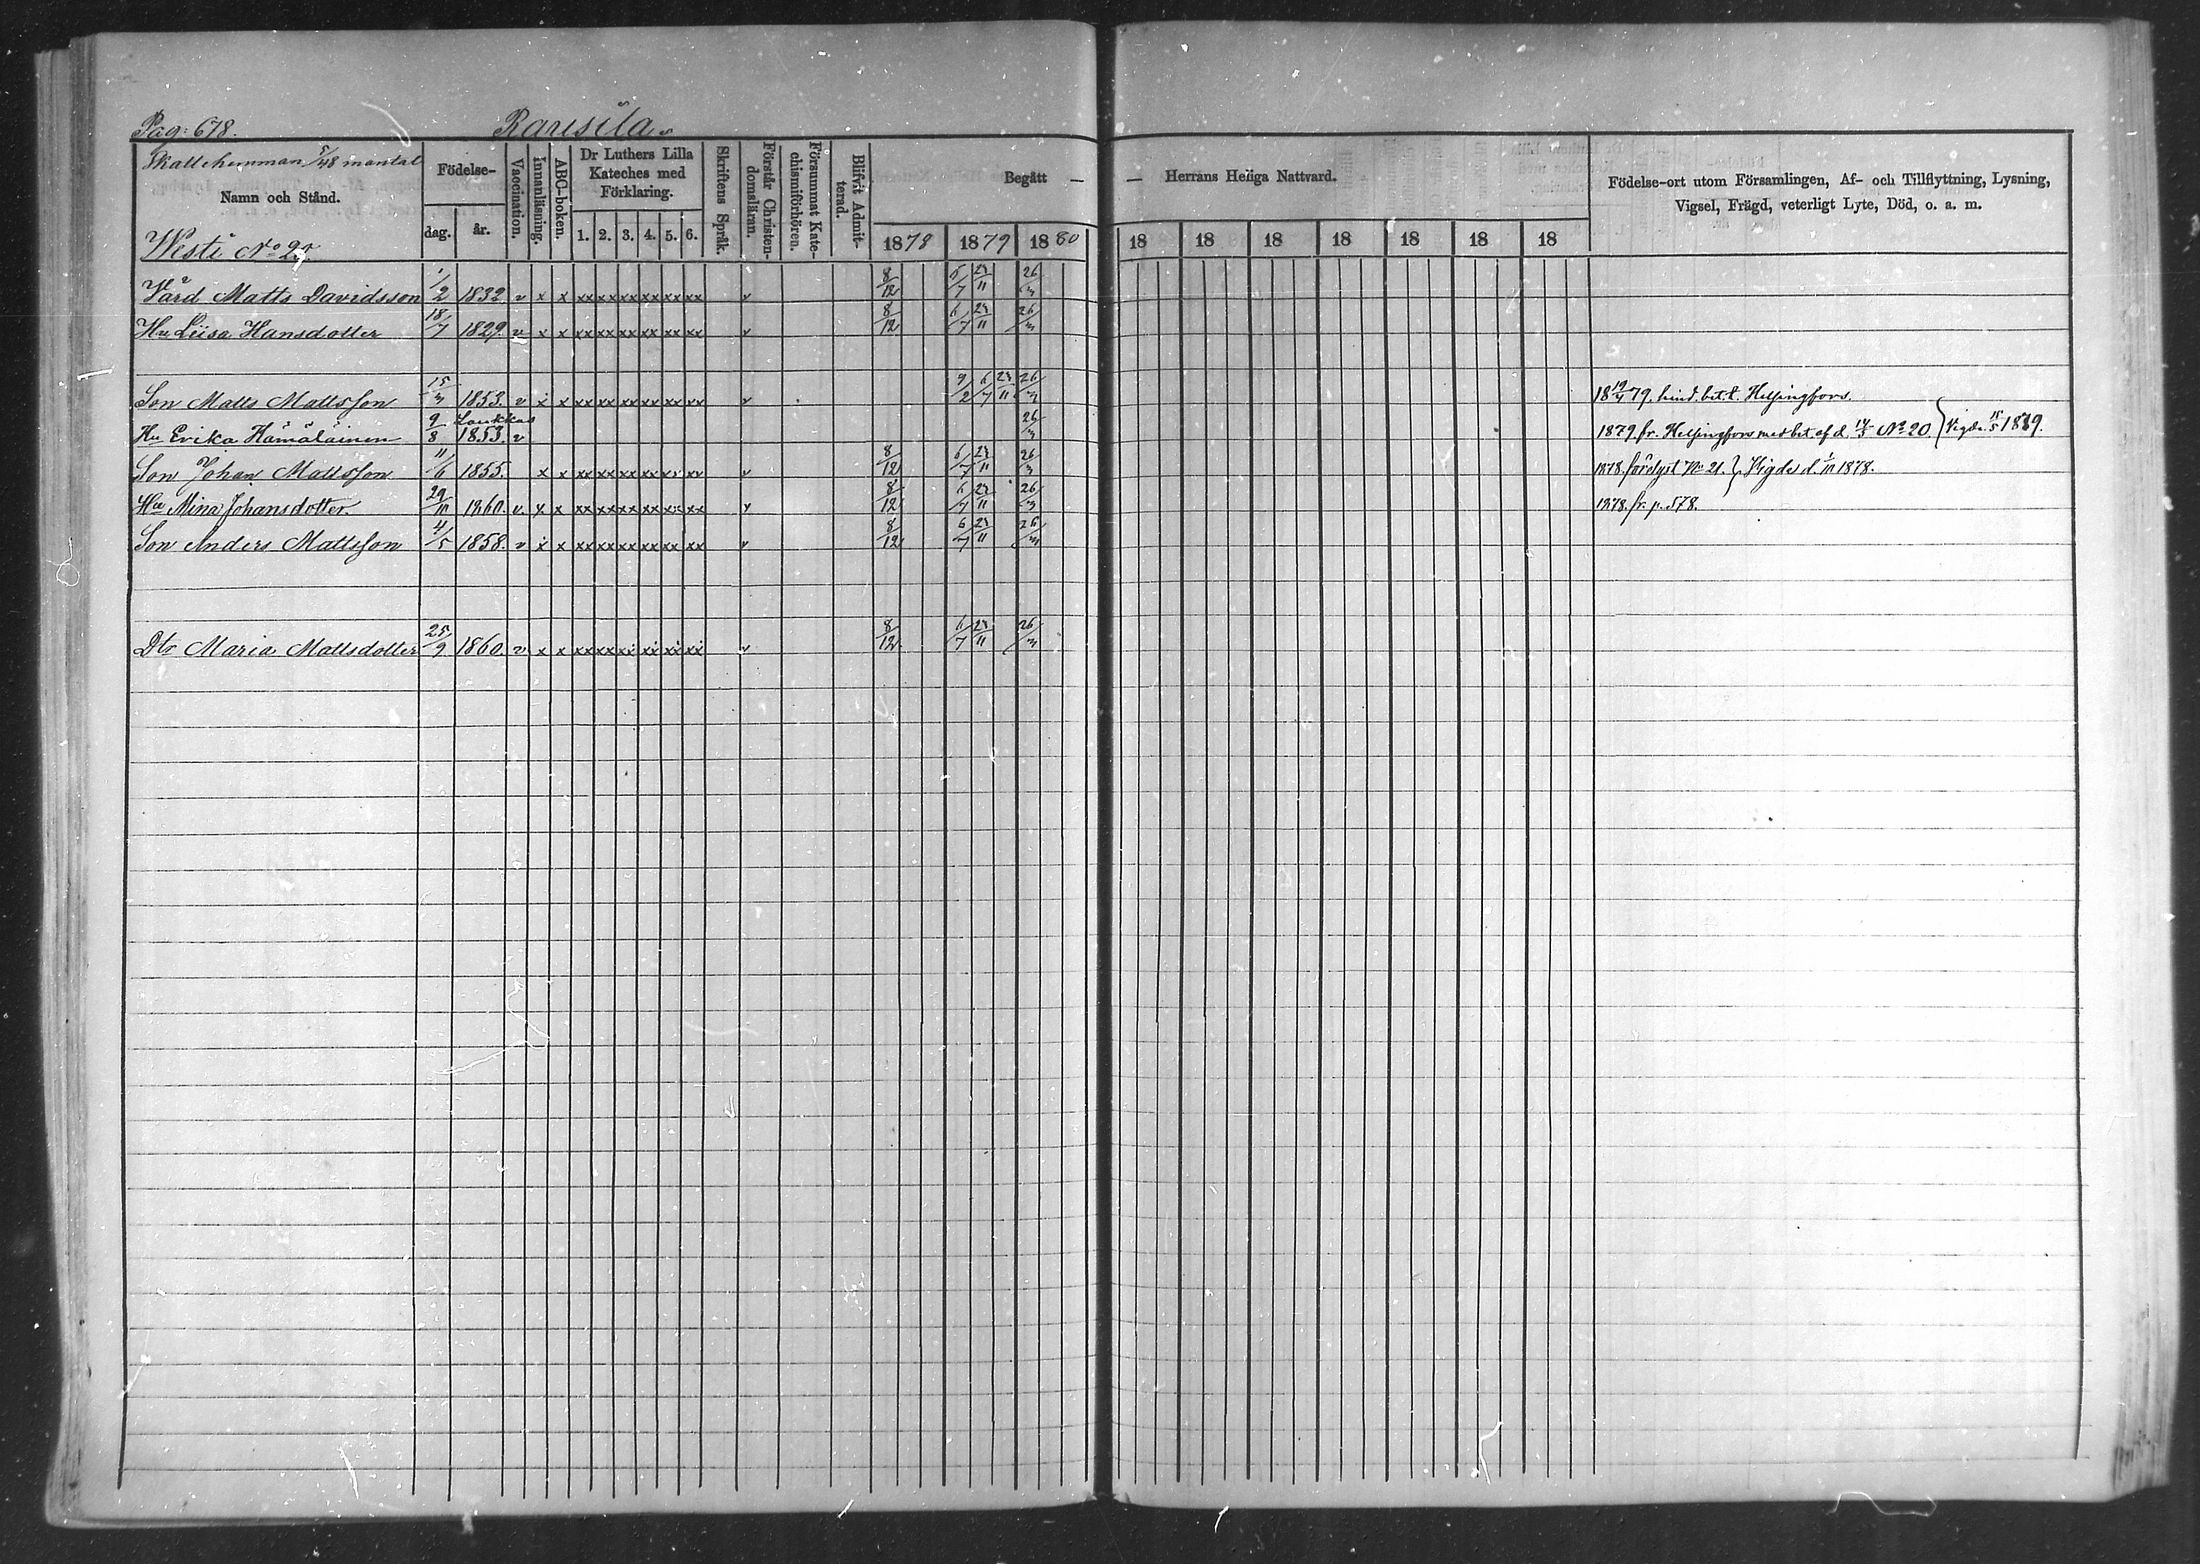 Pag: 678. Rausila.
Skattehemman 5/48 mantal
Namn och Stånd.
Westi No 21.
Födelse-
dag. år.
Vaccination.
Innanläsning.
ABC-boken.
Dr Luthers Lilla
Kateches med
Förklaring.
1. 2. 3. 4. 5. 6.
Skriftens Språk.
Förstår Christen-
domsläran.
Försummat Kate-
chismiförhören.
Blifvit Admit-
terad.
Begått — — Herrans Heliga Nattvard.
1878 1879 1880 18 18 18 18 18 18 18
Födelse-ort utom Församlingen, Af- och Tillflyttning, Lysning,
Vigsel, Frägd, veterligt Lyte, Död, o. a. m.
Värd Matts Davidsson 1/2 1832 v x x xx xx xx xx xx xx v 8/12 6/7 23/11 26/3
Hu Leisa Hansdotter 18/7 1829. v x x xx xx xx xx xx xx v 8/12 6/7 23/11 26/3
Son Matts Mattsson 15/3 1853. v x x xx xx xx xx xx xx v 9/2 6/7 23/11 26/3 18 19/4 79. hind. bet. t. Helsingfors.
Hu Erika Hämäläinen 9/8 Laukkas 1853. v 26/3 1879. fr. Helsingfors med bet. af d. 17/5 No 20. } Vigde. 15/5 1879.
Son Johan Mattsson 11/6 1855. x x xx xx xx xx xx xx v 8/12 6/7 23/11 26/3 1878. No 21. } Vigde d. 1878.
Hu Mina Johansdotter 29/10 1860. v. x x xx xx xx xx xx xx v 8/12 6/7 23/11 26/3 1878. fr. p. 578.
Son Anders Mattsson 4/5 1858. v x x xx xx xx xx xx xx v 8/12 6/7 23/11 26/3
Dtr Maria Mattsdotter 25/9 1860. v x x xx xx xx xx xx xx v 8/12. 6/7 23/11 26/3